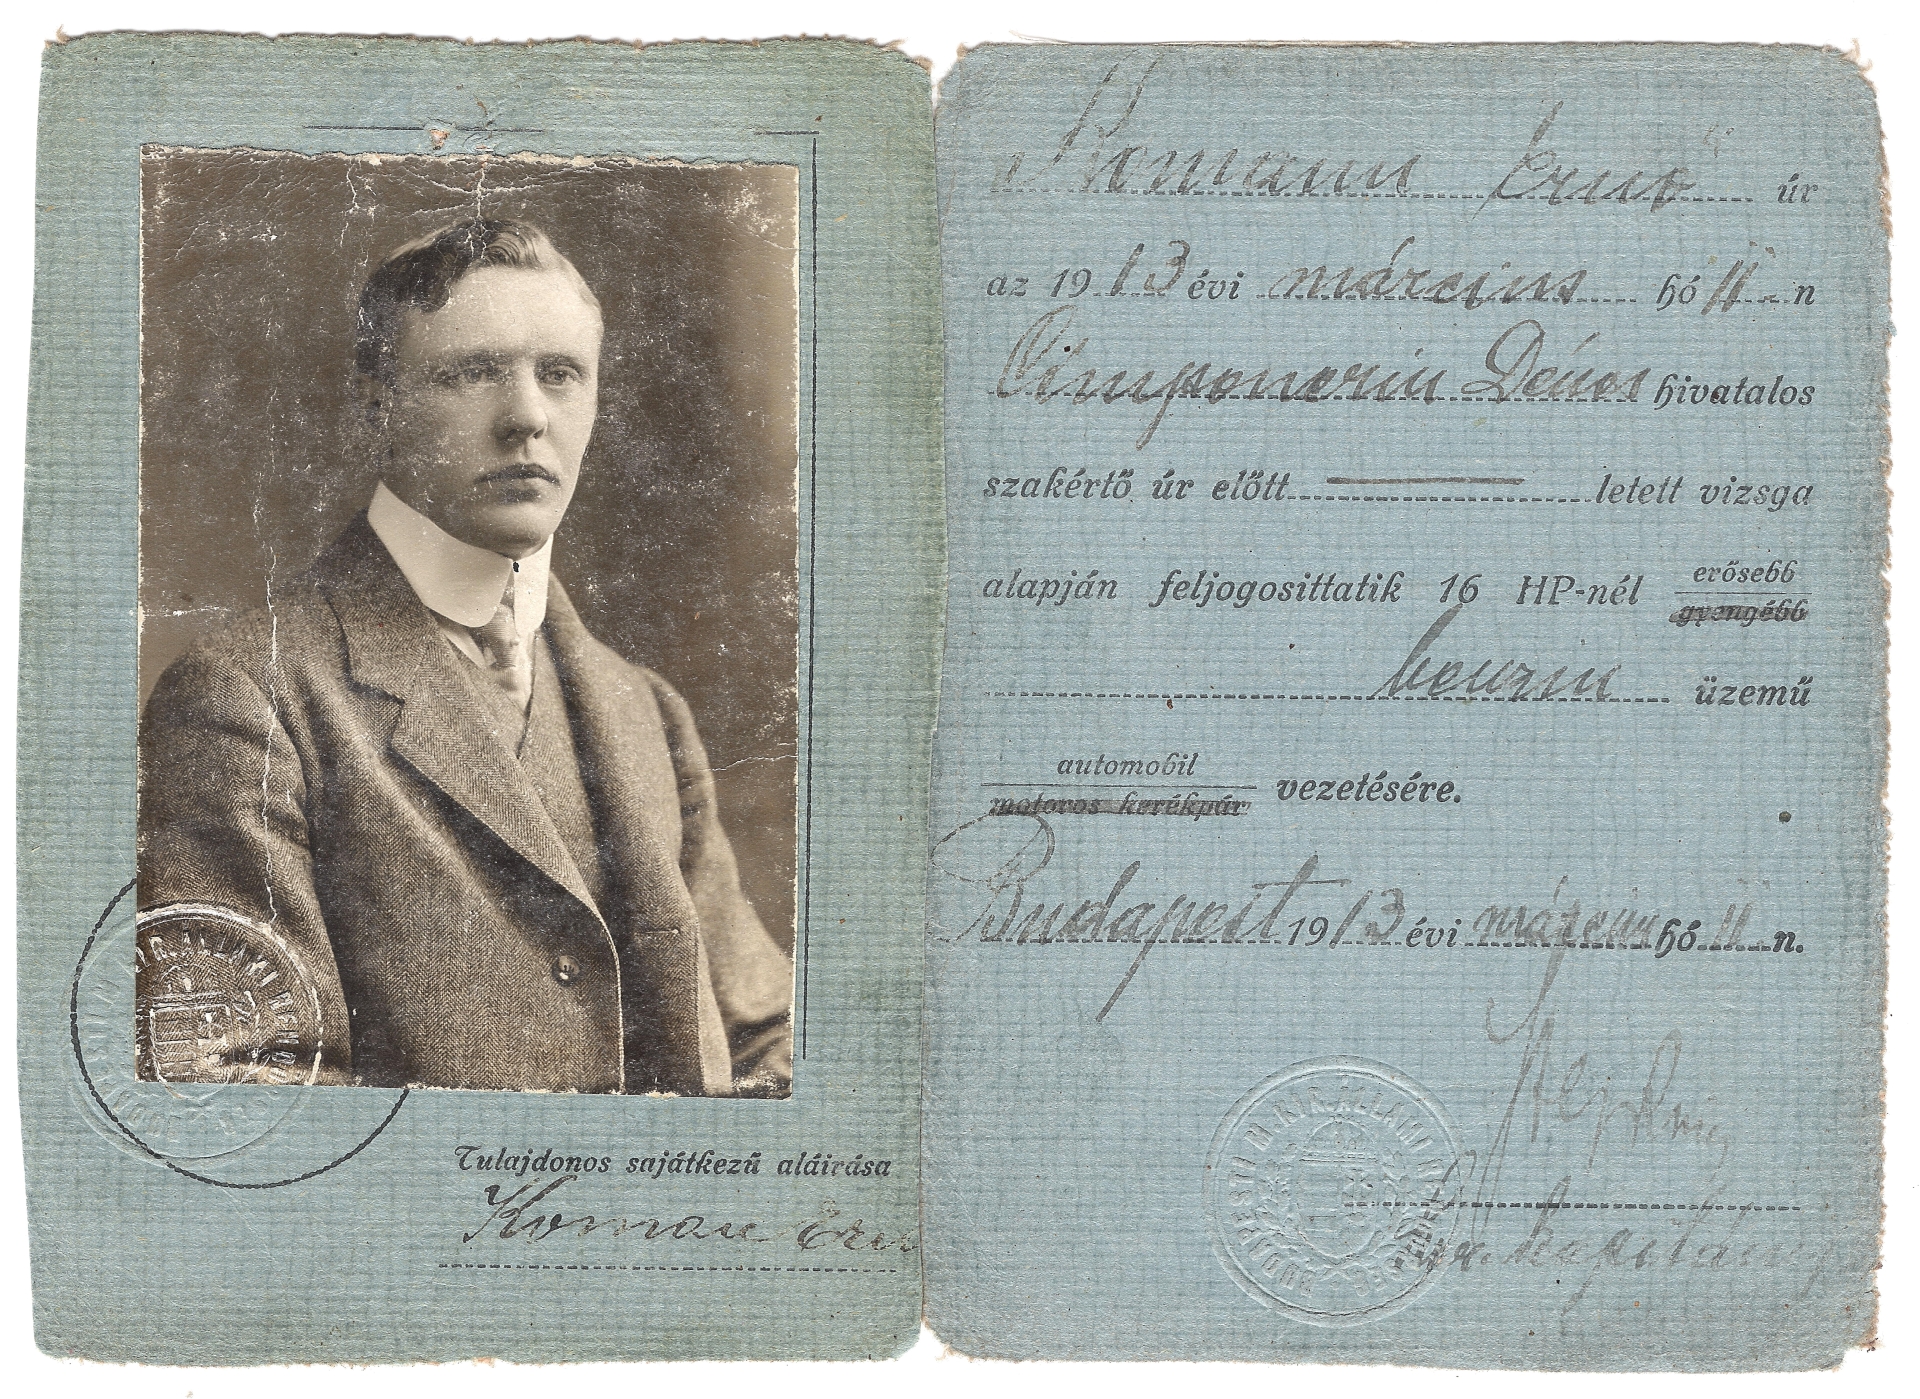 Tulajdonos sajátkezű aláirása
Koman Ernő
Romann Ernő úr
az 1913 évi március hó 11-n
Dénes hivatalos
szakértő úr előtt letett vizsga
alapján feljogosittatik 16 HP-nél erősebb
gyengébb
benzin üzemű
automobil
motoros kerékpár vezetésére.
Budapest 1913 évi március hó 11 n.
BUDAPESTI M. KIR. ÁLLAMI RENDŐRSÉG
kapitány